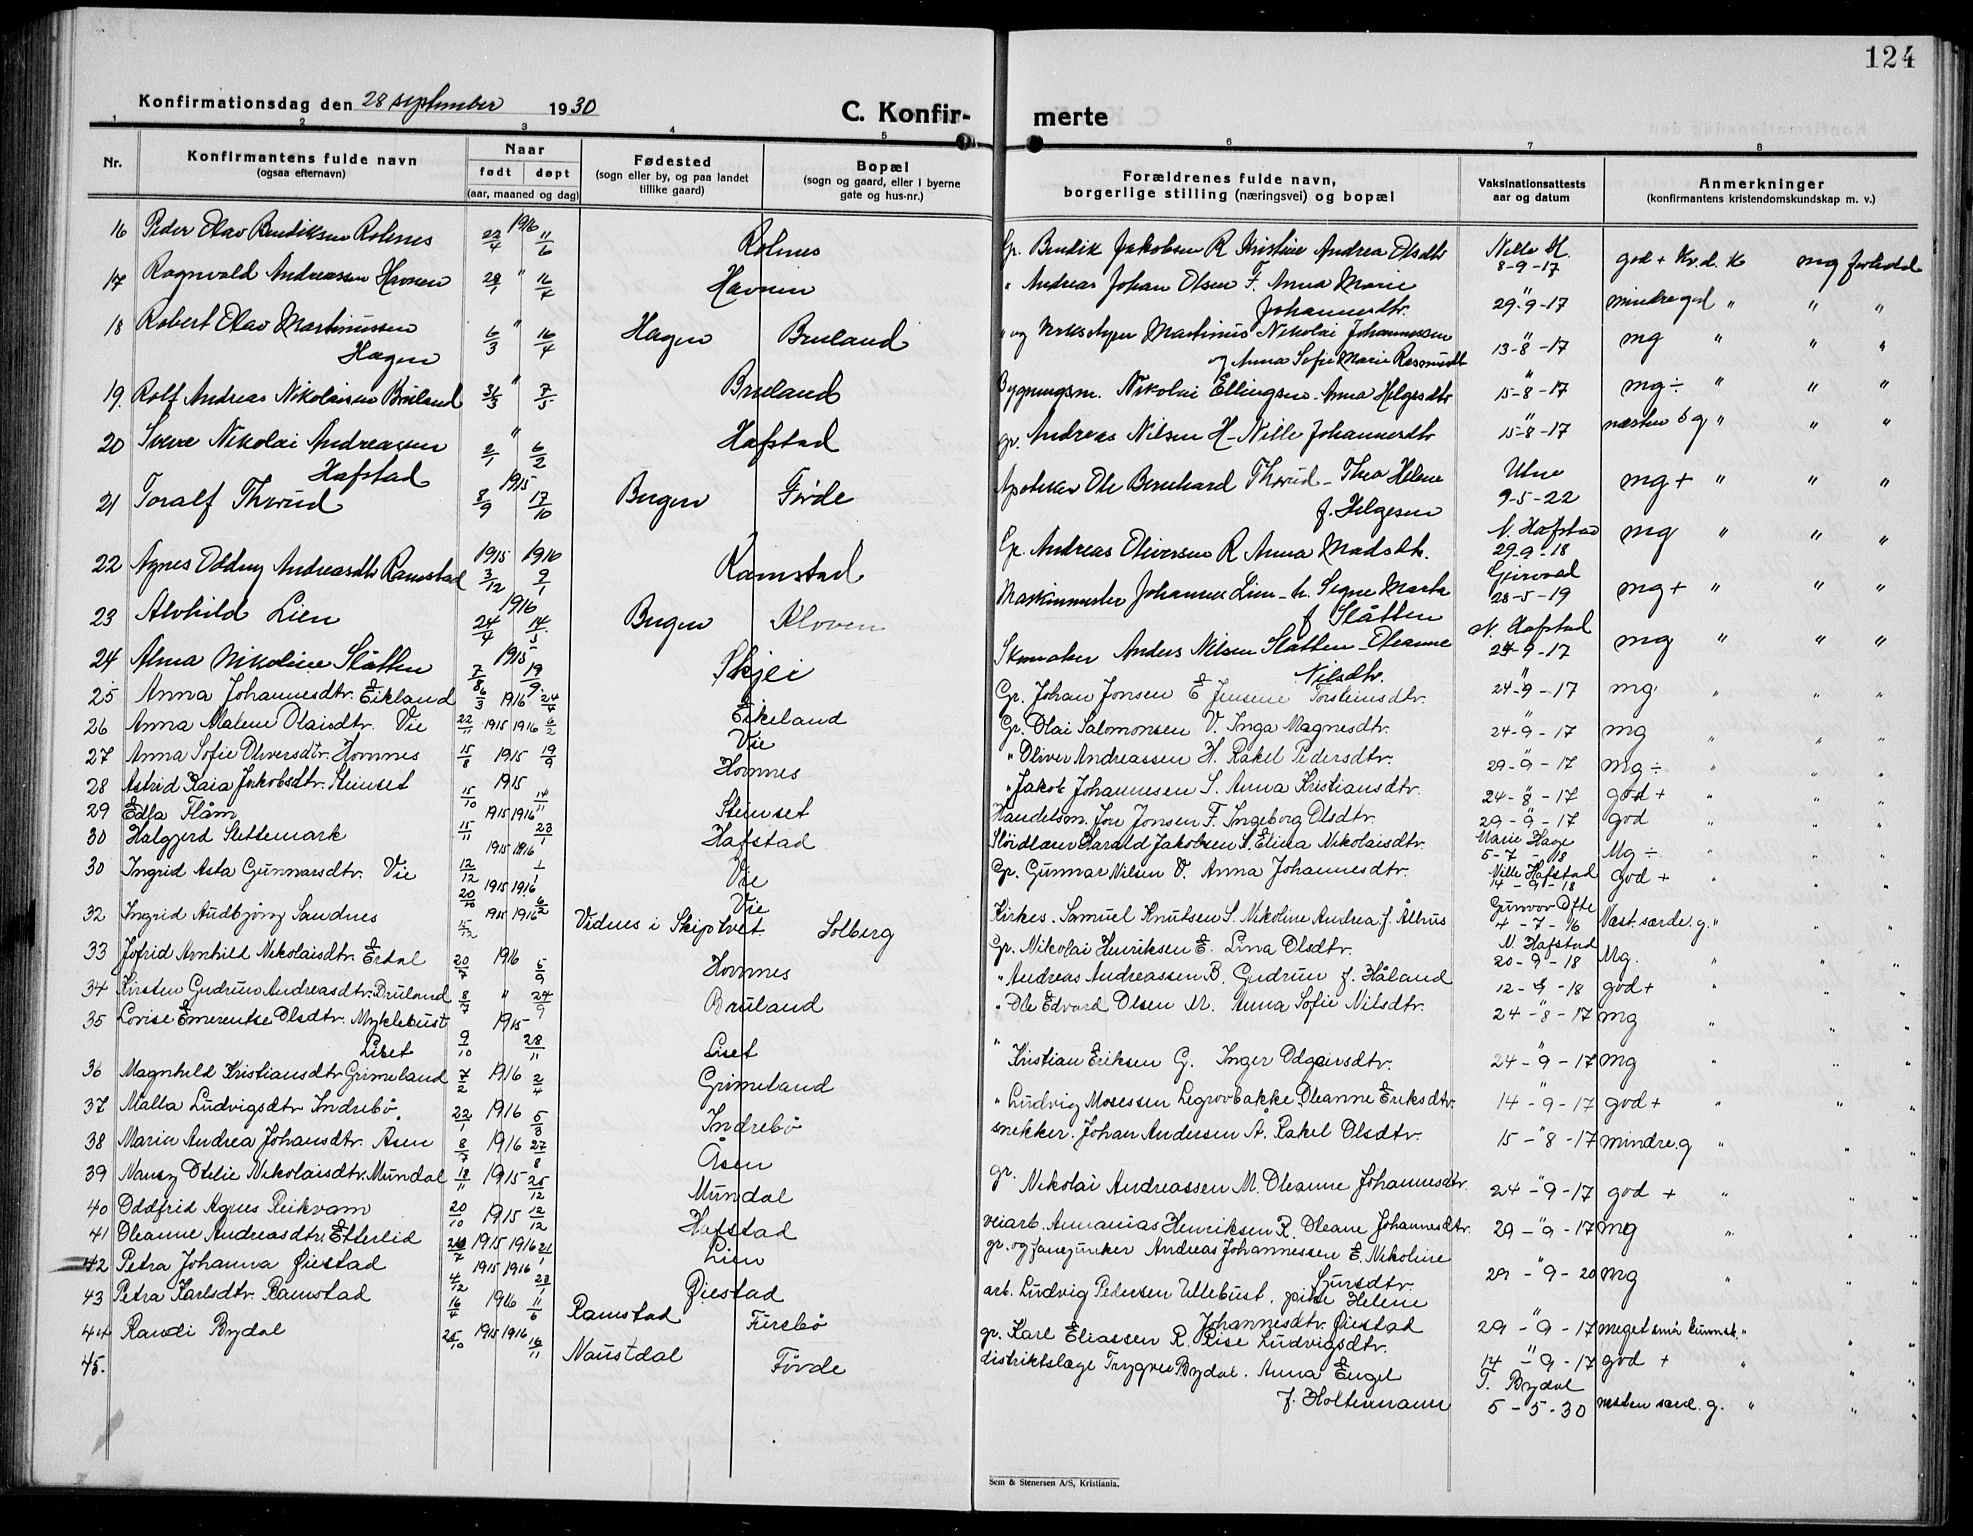 124
Konfirmationsdag den 28 september 1930
C. Konfir-
merte
1 2 3 4 5 6 7 8
Nr.
Konfirmantens fulde navn
(ogsaa efternavn)
Naar
født døpt
(aar, maaned og dag)
Fødested
(sogn eller by, og paa landet
tillike gaard)
Bopæl
(sogn og gaard, eller i byerne
gate og hus-nr.)
Forældrenes fulde navn,
borgerlige stilling (næringsvei) og bopæl
Vaksinationsattests
aar og datum
Anmerkninger
(konfirmantens kristendomskundskap m. v.)
16 Peder Olav Bendiksen Rolnes 22/4 1916 11/6 Rolnes Gr. Bendik Jakobsen R Kristine Andrea Olsdtr Nille H. 8-9-17 god + Kr.d.k mg forhold
17 Ragnvald Andreassen Havnen 28/1 " 16/4 Havnen " Andreas Johan Olsen F. Anna Marie
Johannesdtr. " 29-9-17 mindre god " " "
18 Robert Olav Martinussen
Hagen 6/3 " 16/4 Hagen Bruland " og Martinus Nikolai Johannessen
og Anna Sofie Marie Rasmusdtr " 13-8-17 mg " " "
19. Rolf Andreas Nikolaisen Bruland 31/3 " 7/5 Bruland Bygningsm. Nikolai Ellingsen. Anna Helgesdtr " 15-8-17 mg ÷ " " "
20 Sverre Nikolai Andreassen
Hafstad 2/1 " 6/2 Hafstad gr. Andreas Nilsen H - Nille Johannesdtr " 15-8-17 næsten s g " " "
21 Toralf Thorud 8/9 1915 17/10 Bergen Førde Apoteker Ole Bernhard Thorud - Thea Helene
f. Helgesen Utne 9-5-22 mg + " " "
22 Agnes Oddny Andreasdtr Ramstad 1915 3/12 1916 9/1 Ramstad Gr. Andreas Oliversen R Anna Madsdtr. N. Hafstad 29-9-18 mg " " "
23 Alvhild Lien 24/4 1916 14/5 Bergen Kloven Maskinmester Johannes Lien - h. Signe Marta
f Slåtten Geirvad 28-5-19 mg + " " "
24 Alma Nikoline Slåtten 7/8 1915 19/9 Skjei Skomaker Anders Nilsen Slåtten - Oleanne
Nilsdtr. N. Hafstad 24-9-17 mg " " "
25 Anna Johannesdtr. Eikland 6/3 1916 24/4 Eikeland Gr. Johan Jonsen E Jensine Torsteinsdtr. " 24-9-17 mg " " "
26 Anna Malene Olaisdtr. Vie 22/11 1915 1916 6/2 Vie Gr. Olai Salomonsen V. Inga Magnesdtr. " 24-9-17 mg " " "
27 Anna Sofie Oliversdtr. Hornnes 15/8 1915 19/9 Hornnes " Oliver Andreassen H. Rakel Pedersdtr. 29-"9-17 mg ÷ " " "
28 Astrid Kaia Jakobsdtr. Steinset 15/10 1915 14/11 Steinset " Jakob Johannesen S. Anna Kristiansdtr. 24-"8-17 god + " " "
29 Edla Flåm 15/11 1915 1916 23/1 Hafstad Handelsm. Jon Jonsen F. Ingeborg Olsdtr. 29-"9-17 god " " "
30 Halgjerd Slettemark 12/12 1915 1916 1/1 Vie Sløidlærer Harald Jakobsen S. Elina Nikolaisdtr. Marie Hage 5-7-18 Mg ÷ " " "
30 Ingrid Asta Gunnarsdtr. Vie 20/10 1915 1916 6/2 Vie Gr. Gunnar Nilsen V. Anna Johannesdtr. Nille Hafstad 14-9-18 God + " " "
32 Ingrid Audbjørg Sandnes 15/12 1915 1916 Vidnes i Skiptvet Solberg Kirkes. Samuel Knutsen S. Nikoline Andrea f. Ålhus Gunvor Ofte 4-7-16 Næst. særde. g. " " "
33 Jofrid Arnhild Nikolaisdtr. Erdal 20/7 1916 5/9 Hornnes Gr. Nikolai Henriksen E. Lina Olsdtr. N. Hafstad 20-9-18 Mg. " " "
34 Kirsten Gudrun Andreasdtr. Bruland 8/7 " 24/9 Bruland " Andreas Andreassen B. Gudrun f. Håland 12-9-18 god + " " "
35 Lovise Emerentse Olsdtr. Myklebust
Liset 9/10 1915 28/11 Liset " Ole Edvard Olsen M. Anna Sofie Nilsdtr. 24-"8-17 mg " " "
36 Magnhild Kristiansdtr Grimeland 7/2 1916 2/4 Grimeland " Kristian Eriksen G. Inger Odgeirsdtr. 24-"9-17 mg " " "
37 Malla Ludvigsdtr Indrebø 22/1 1916 5/3 Indrebø " Ludvig Mosessen Legrovbakke Oleanne Eriksdtr. 14-"9-17 god + " " "
38 Marie Andrea Johansdtr. Åsen 8/7 1916 27/8 Åsen snekker. Johan Andersen Å. Rakel Olsdtr. 15-"8-17 mindre.g " " "
39 Nancy Otelie Nikolaisdtr. Mundal 18/11 1915 25/12 Mundal gr. Nikolai Andreassen M. Oleanne Johannesdtr. 24-"9-17 god + " " "
40 Oddfrid Agnes Reikvam 20/10 1915 12/12 Hafstad veiarb. Annanias Henriksen R. Oleane Johannesdtr. 29-"9-17 mg " " "
41 Oleanne Andreasdtr. Etterlid 26/7 1915 1916 21/1 Lien gr. og fanejunker Andreas Johannessen E. Nikoline
Sjursdtr. 29-"9-20 mg " " "
42 Petra Johanna Øiestad 4/12 1915 1916 23/1 Øiestad arb. Ludvig Pedersen Ullebust, pike Helene
Johannesdtr. Øiestad 29-"9-17 meget små kunnsk. " " "
43 Petra Karlsdtr. Ramstad 16/4 1916 11/6 Ramstad Furebø gr. Karl Eliassen R. Lise Ludvigsdtr. 14-"9-17 god + " " "
44 Randi Bydal 25/10 1915 1916 19/11 Naustdal Førde distriktslæge Trygve Bydal. Anna Engel
f. Holtermann T. Bydal 5-5-30 nesten særd. g. " " "
45.
Sem & Stenersen A/S, Kristiania.